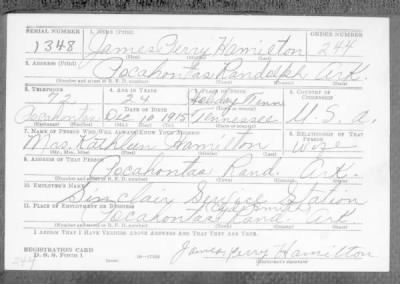 SERIAL NUMBER 1. NAME (Print) ORDER NUMBER
1348 James Perry Hamilton 244
(First) (Middle) (Last)
2. ADDRESS (Print)
Pocahontas Randolph Ark.
(Number and street or R. F. D. number) (Town) (County) (State)
3. TELEPHONE 4. AGE IN YEARS 5. PLACE OF BIRTH 6. COUNTRY OF CITIZENSHIP
72 24 Holiday Tenn
DATE OF BIRTH
Pocahontas Dec 10 1915 Tennessee U. S. A.
(Exchange) (Number) (Mo.) (Day) (Yr.) (State or country)
7. NAME OF PERSON WHO WILL ALWAYS KNOW YOUR ADDRESS 8. RELATIONSHIP OF THAT PERSON
Mrs. Kathleen Hamilton Wife
(Mr., Mrs., Miss) (First) (Middle) (Last)
9. ADDRESS OF THAT PERSON
Pocahontas Rand. Ark.
(Number and street or R. F. D. number) (Town) (County) (State)
10. EMPLOYER'S NAME
Sinclair Service Station
11. PLACE OF EMPLOYMENT OR BUSINESS
Pocahontas Rand. Ark
(Number and street or R. F. D. number) (Town) (County) (State)
I AFFIRM THAT I HAVE VERIFIED ABOVE ANSWERS AND THAT THEY ARE TRUE.
REGISTRATION CARD
D. S. S. FORM 1
James Perry Hamilton
(Registrant's signature)
244